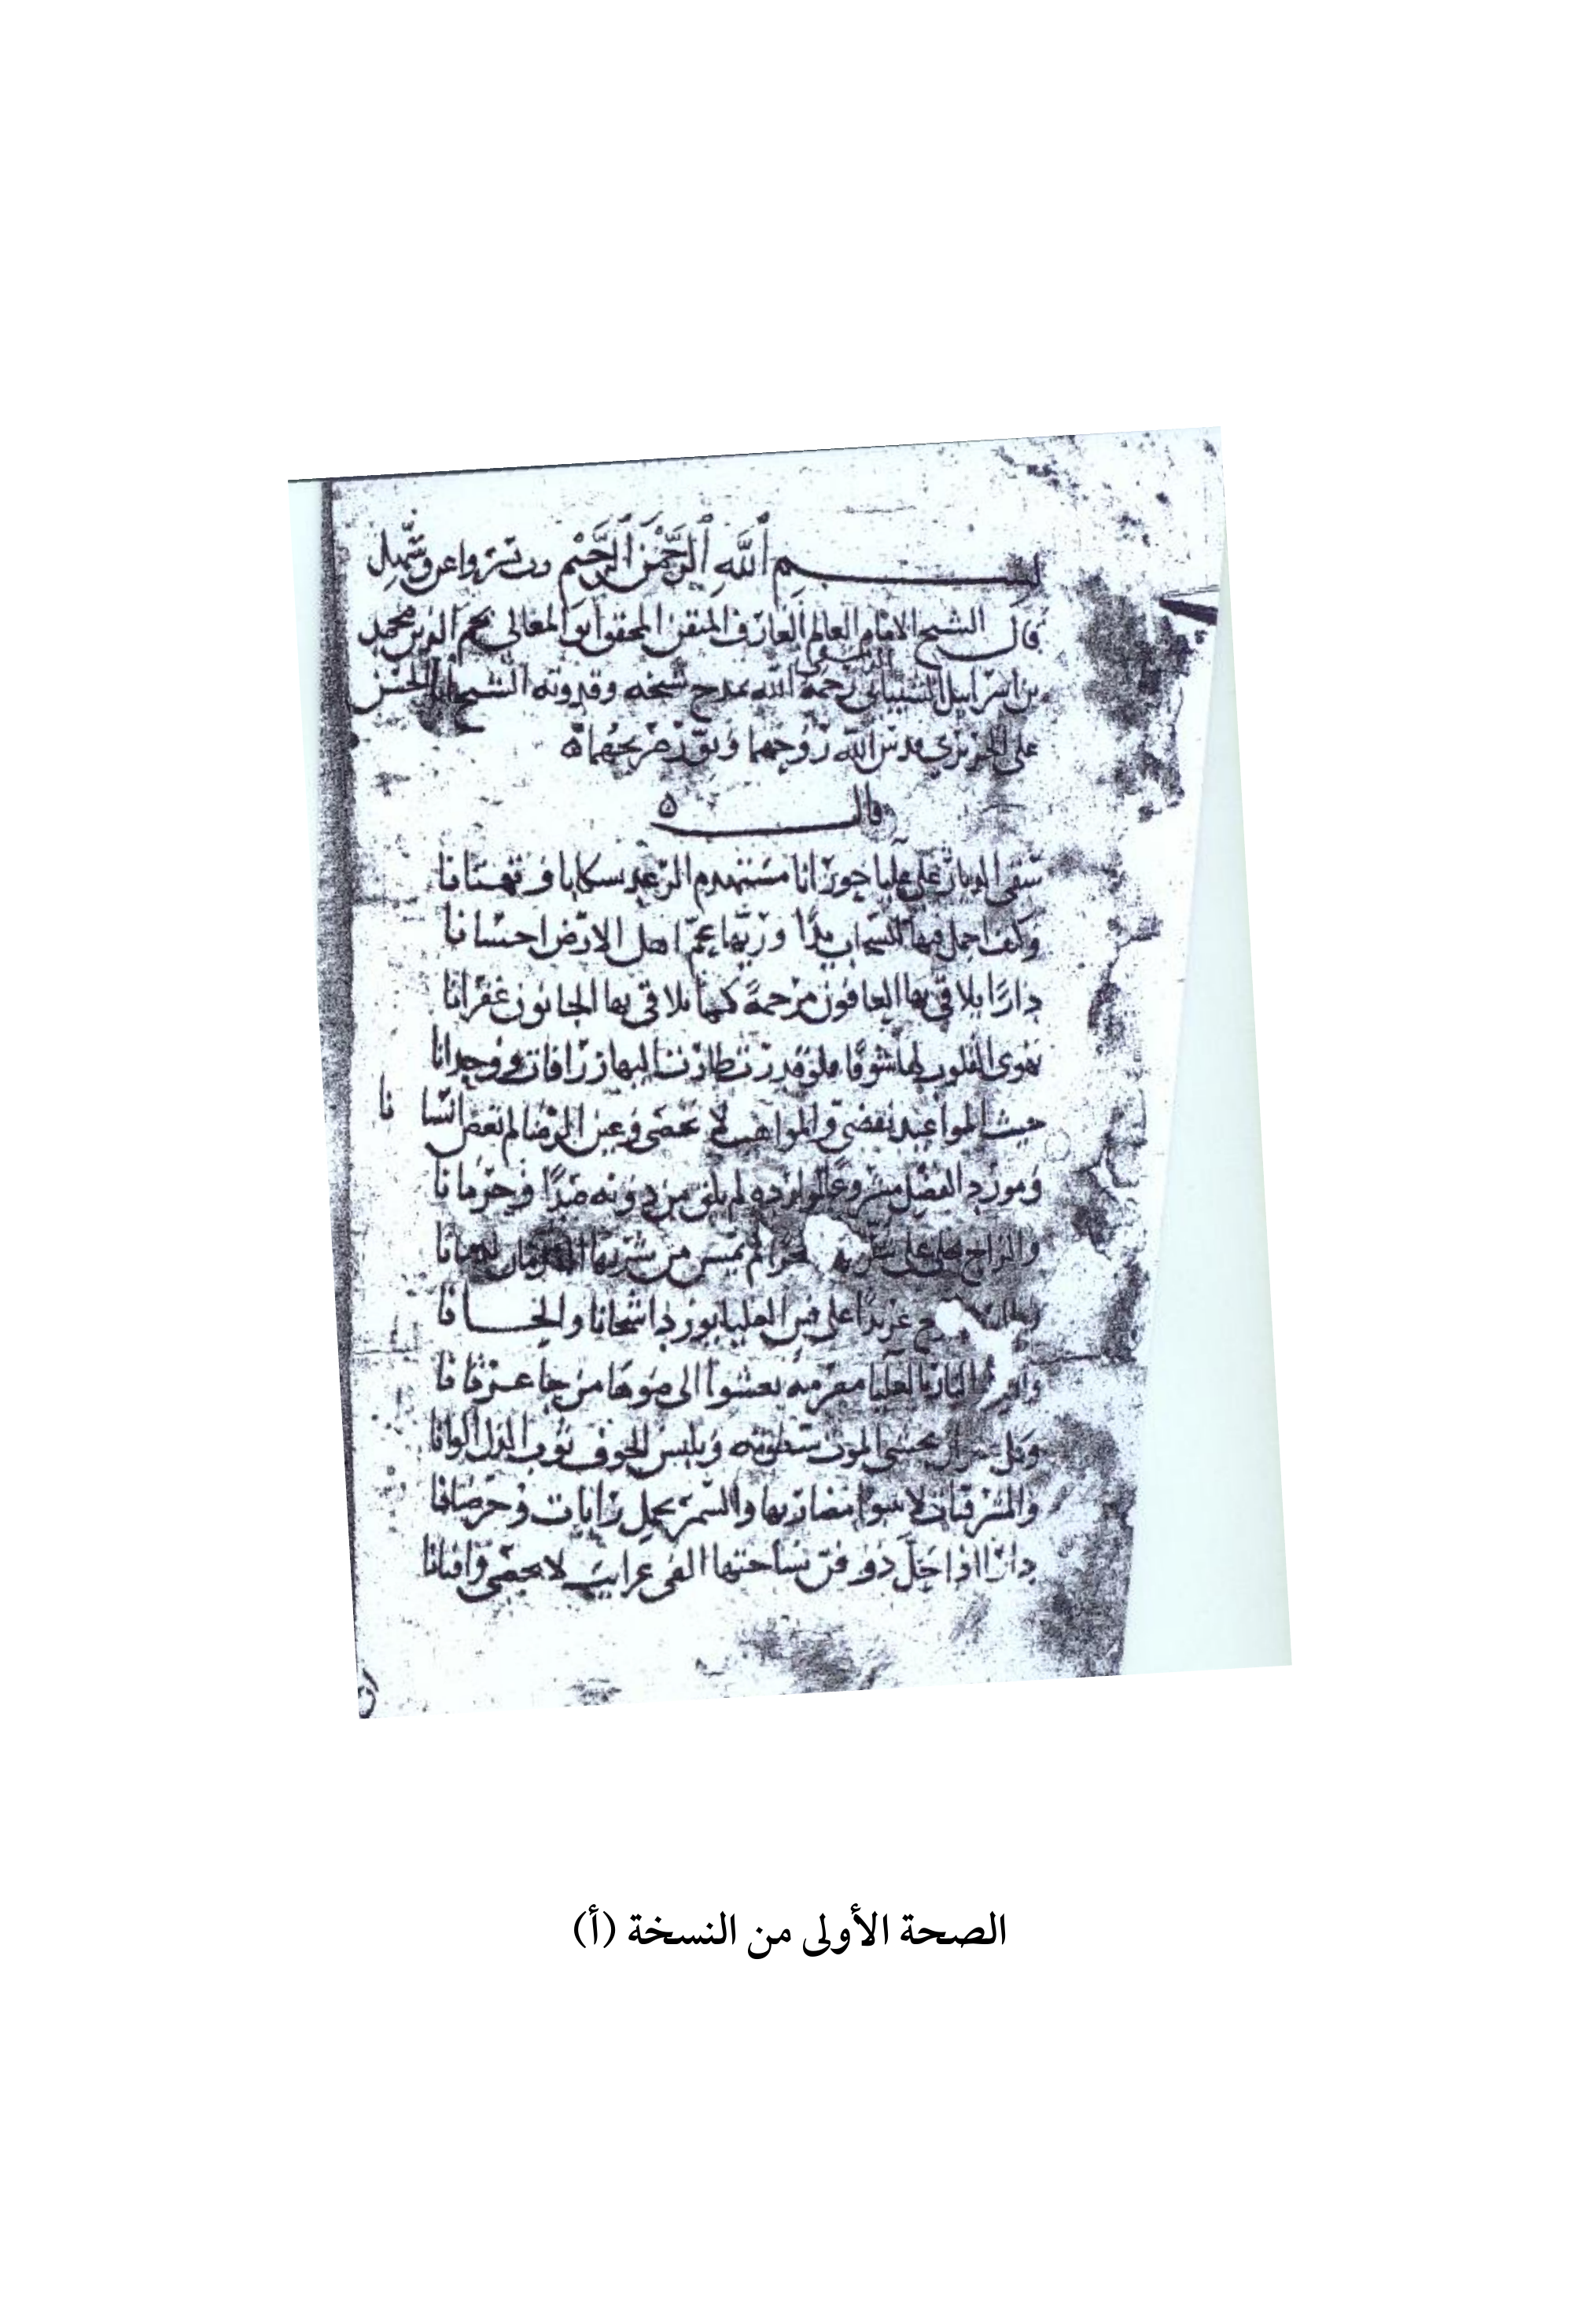 بسم الله الرحمن الرحيم رب يسر واعن وسهل
قال الشيخ الامام العالم العارف المتقن المحقق ابو المعالي نجم الدين محمد
بن اسرايل الشيباني رحمه الله يمدح شيخه وقدوته الشيخ ابا الحسن
على الحريري قدس الله روحهما ونور ضريحهما
قال
سقى الديار على علياء حورانا مستهدم الرعد سكابا وتهتانا
وكيف احمل فيها للسحاب يدًا وربها عم اهل الارض احسانا
دارًا يلاقي بها العافون مرحمة كما يلاقي بها الجانون غفرانا
تهوى القلوب لها شوقا فلو قدرت طارت اليها زرافات ووحدانا
حيث المواعيد تقضى والمواهب لا تحصى وعين الرضا لم تغض انسانا
ومورد الفضل مشروعًا لوارده لم يلق من دونه صدًا وحرمانا
والراح على من شربها
عزيزًا على العليا يورد اشجانا والحانا
النار بالعليا مضرمه يعشوا الى ضوها من جا عرفانا
وكل يخشى الموت سطوته ويلبس الخوف ثوب الذل الوانا
والمشرفيات لا تنبوا مضاربها والسمر تحمل رايات وخرصانا
دارًا اذا حل ذو فن بساحتها الفى غرايب لا تحصى وافنانا
الصحة الأولى من النسخة (أ)